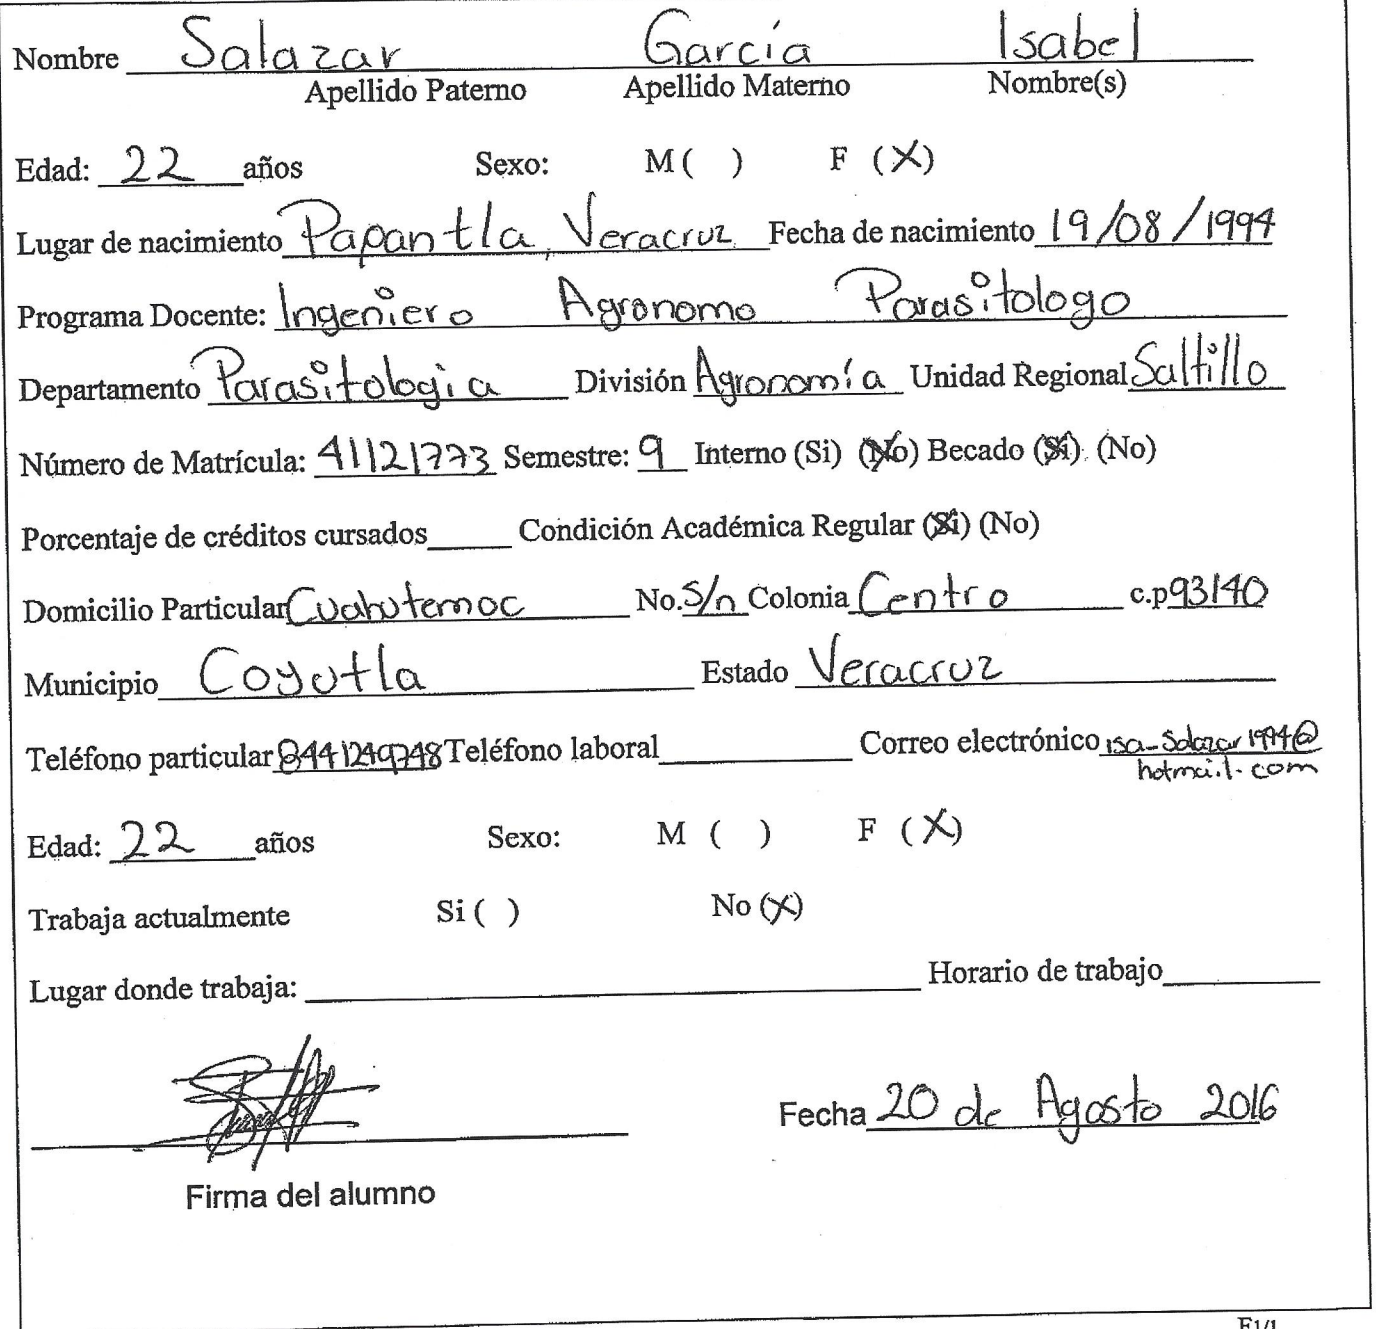 Nombre Salazar García Isabel
Apellido Paterno Apellido Materno Nombre(s)
Edad: 22 años Sexo: M ( ) F (X)
Lugar de nacimiento Papantla, Veracruz Fecha de nacimiento 19/08/1994
Programa Docente: Ingeniero Agronomo Parasitologo
Departamento Parasitologia División Agronomía Unidad Regional Saltillo
Número de Matrícula: 41121773 Semestre: 9 Interno (Si) (No) Becado (Si) (No)
Porcentaje de créditos cursados_____ Condición Académica Regular (Si) (No)
Domicilio Particular Cuahutemoc No. S/n Colonia Centro c.p 93140
Municipio Coyutla Estado Veracruz
Teléfono particular 8441249748 Teléfono laboral__________ Correo electrónico isa-Salazar1994@
hotmail.com
Edad: 22 años Sexo: M ( ) F (X)
Trabaja actualmente Si ( ) No (X)
Lugar donde trabaja: __________ Horario de trabajo__________
Fecha 20 de Agosto 2016
Firma del alumno
F1/1